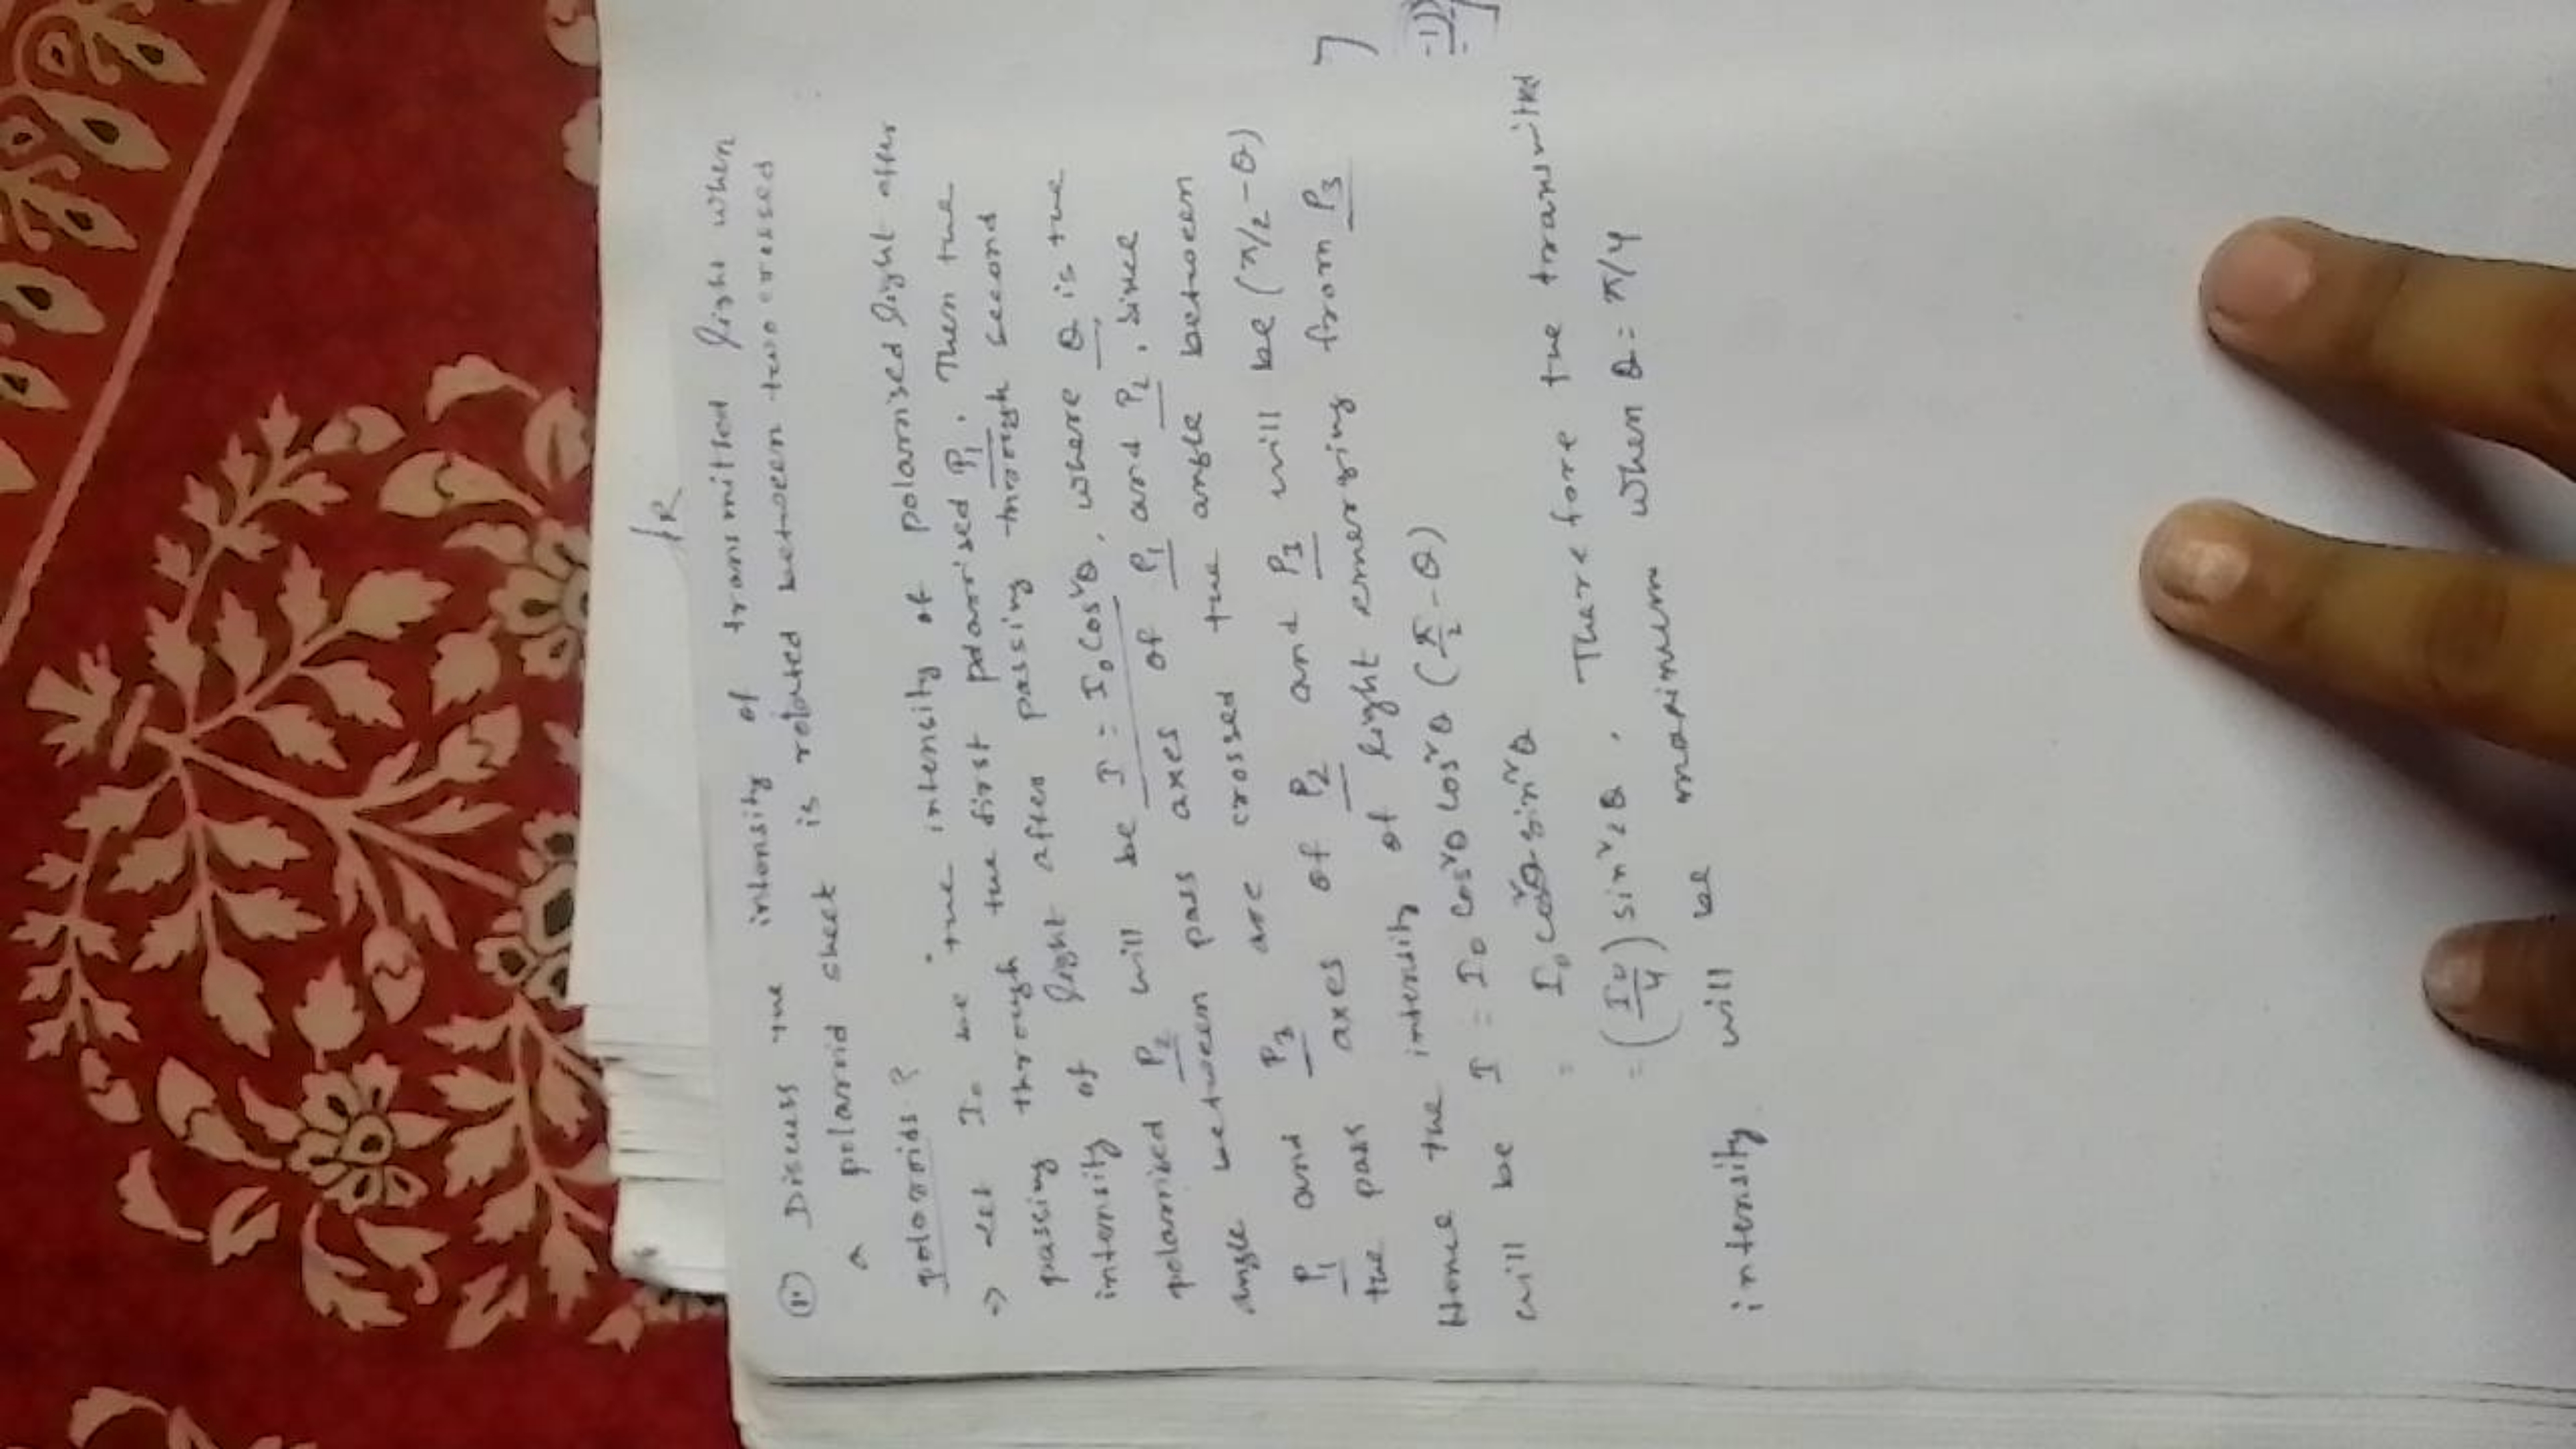 Discuss the intensity of transmitted light when
a polaroid sheet is rotated between two crossed
poloroids?
=> Let I₀ be the intensity of polarised light after
passing through the first polarised P₁. Then the
intensity of light after passing through second
polarised P₂ will be I = I₀ cos²θ, where θ is the
angle between pass axes of P₁ and P₂, since
P₁ and P₃ are crossed the angle between
the pass axes of P₂ and P₃ will be (π/2-θ)
Hence the intensity of light emerging from P₃
will be I = I₀ cos²θ cos²(π/2-θ)
= I₀ cos²θ sin²θ
= (I₀/4) sin²2θ. There fore the transmitted
intensity will be maximum when θ = π/4